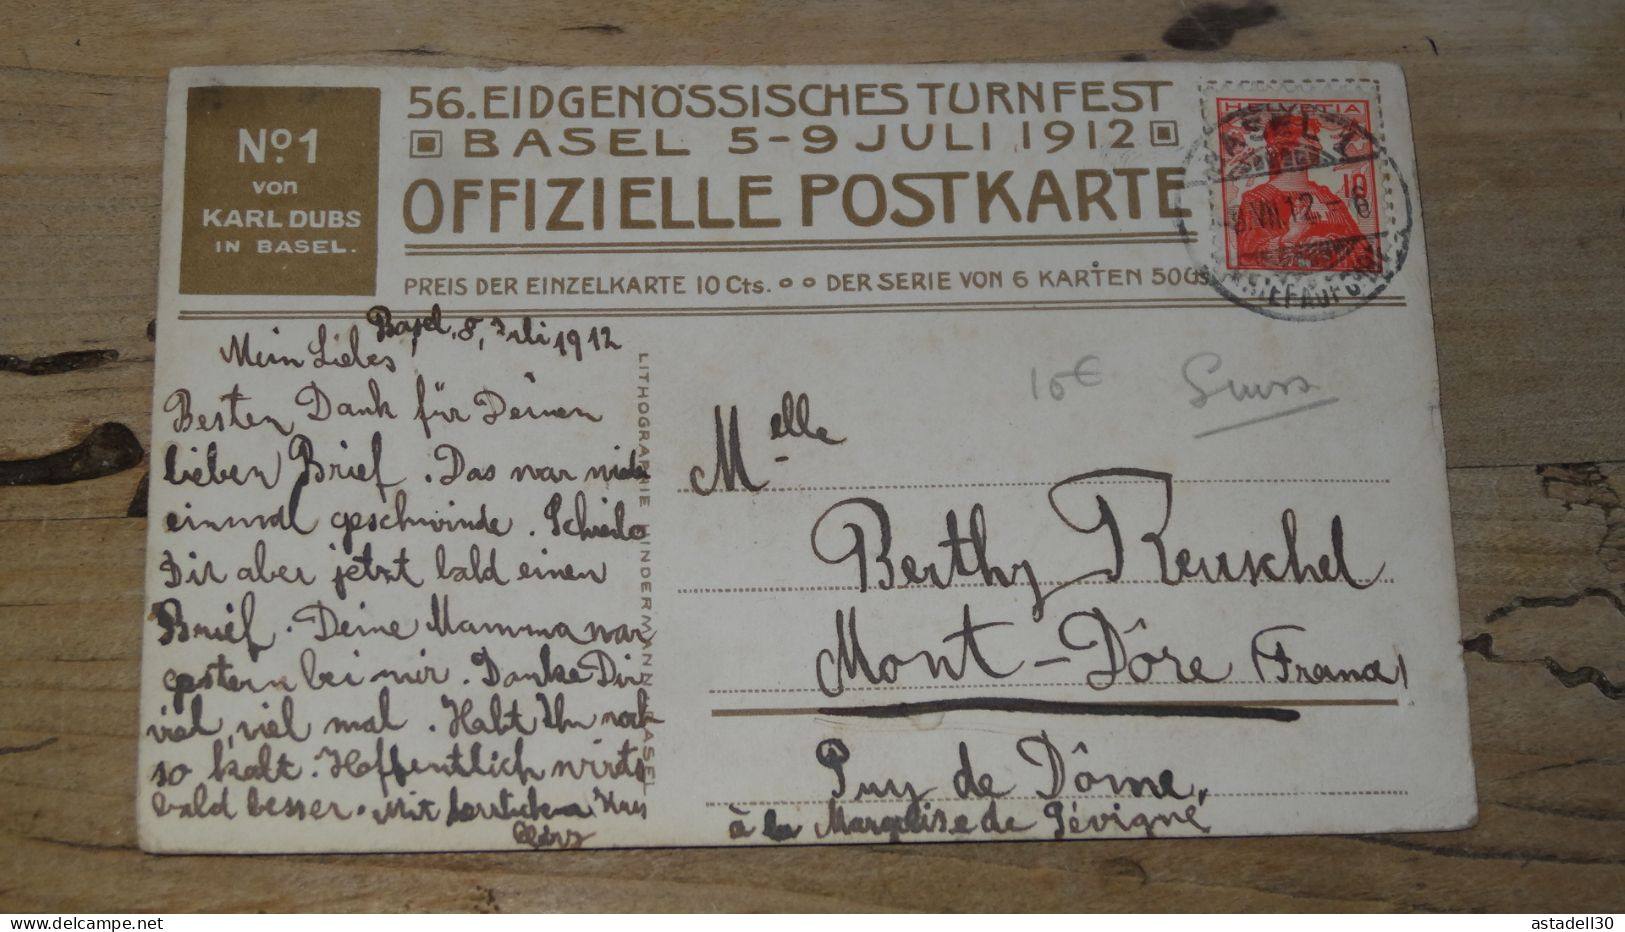 No. 1
von
KARL DUBS
IN BASEL.
56. EIDGENÖSSISCHES TURNFEST
BASEL 5-9 JULI 1912
OFFIZIELLE POSTKARTE
PREIS DER EINZELKARTE 10 Cts. DER SERIE VON 6 KARTEN 50 Cts
HELVETIA
10
BASEL 1
8.VII.12.-6
BRIEFAUFG.
Basel, 8. Juli 1912
Mein Liebes!
Besten Dank für Deinen
lieben Brief. Das war nicht
einmal geschwinde. Schreibe
Dir aber jetzt bald einen
Brief. Deine Mamma war
gestern bei mir. Danke Dir
viel, viel mal. Habt Ihr noch
so kalt. Hoffentlich wirds
bald besser. Mit herzlichem Kuss
LITHOGRAPHIE HINDERMANN, BASEL
10€ Suisse
Melle
Berthy Reuschel
Mont-Dôre (France)
Puy de Dôme,
à la Marquise de Sévigné
www.delcampe.net
astadell30